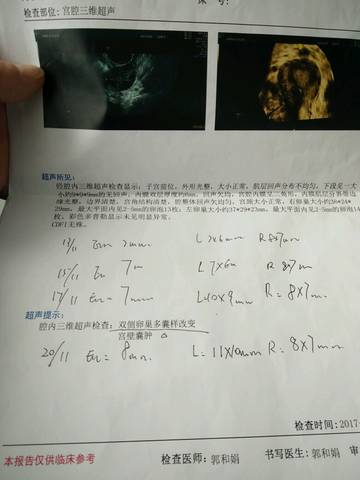 检查部位:宫腔三维超声
超声所见:
经腔内三维超声检查显示:子宫前位,外形光整,大小正常,肌层回声分布不均匀,下段见一大
小约
的无回声,内膜双层厚度约
回声欠均,宫腔内膜呈三角形,内膜肌层分界面边
缘光整,边界清楚,宫角结构清楚,腔整体回声欠均匀,宫颈大小正常,右卵巢大小约36*24*
29mm,最大平面内见2-5mm的卵泡13枚;左卵巢大小约37*29*27mm,最大平面内见2-5mm的卵泡14
枚。彩色多普勒显示未见明显异常。
CDFI无殊。
13/11
R 8x7mm
15/11 En 7m L 7x6m R 8x7m
17/11 En= 7mm L=10x9mm R= 8x7m
超声提示:
腔内三维超声检查:双侧卵巢多囊样改变
宫壁囊肿
20/11 En= 8mm L= 11x10mm R= 8x7mm
检查时间:2017-
本报告仅供临床参考 检查医师:郭和娟 书写医生:郭和娟 审